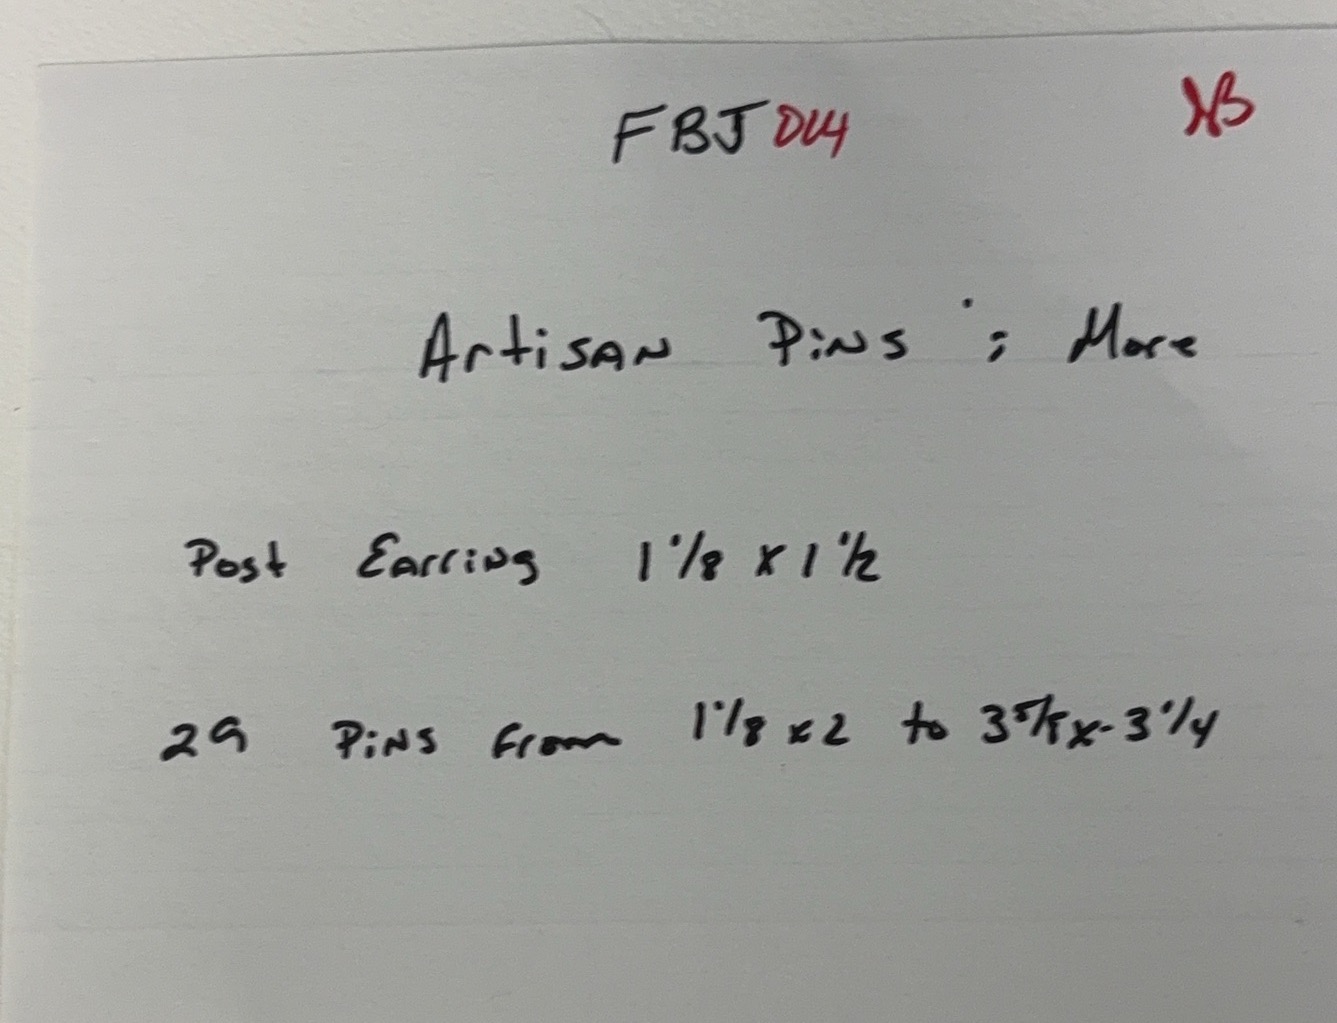 FBJ 014
Artisan Pins ; More
Post Earring 1 1/8 x 1 1/2
29 Pins from 1 1/8 x 2 to 3 5/8 x 3 1/4